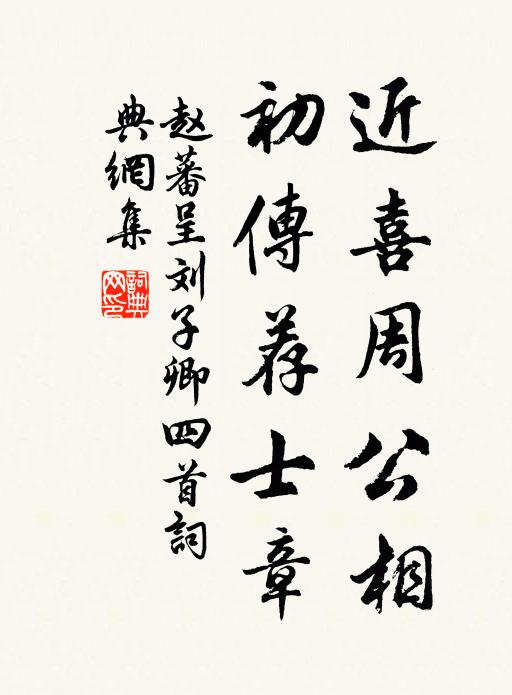 近喜周公相
初傳荐士章
赵蕃呈刘子卿四首詞
典網集
詞典网印